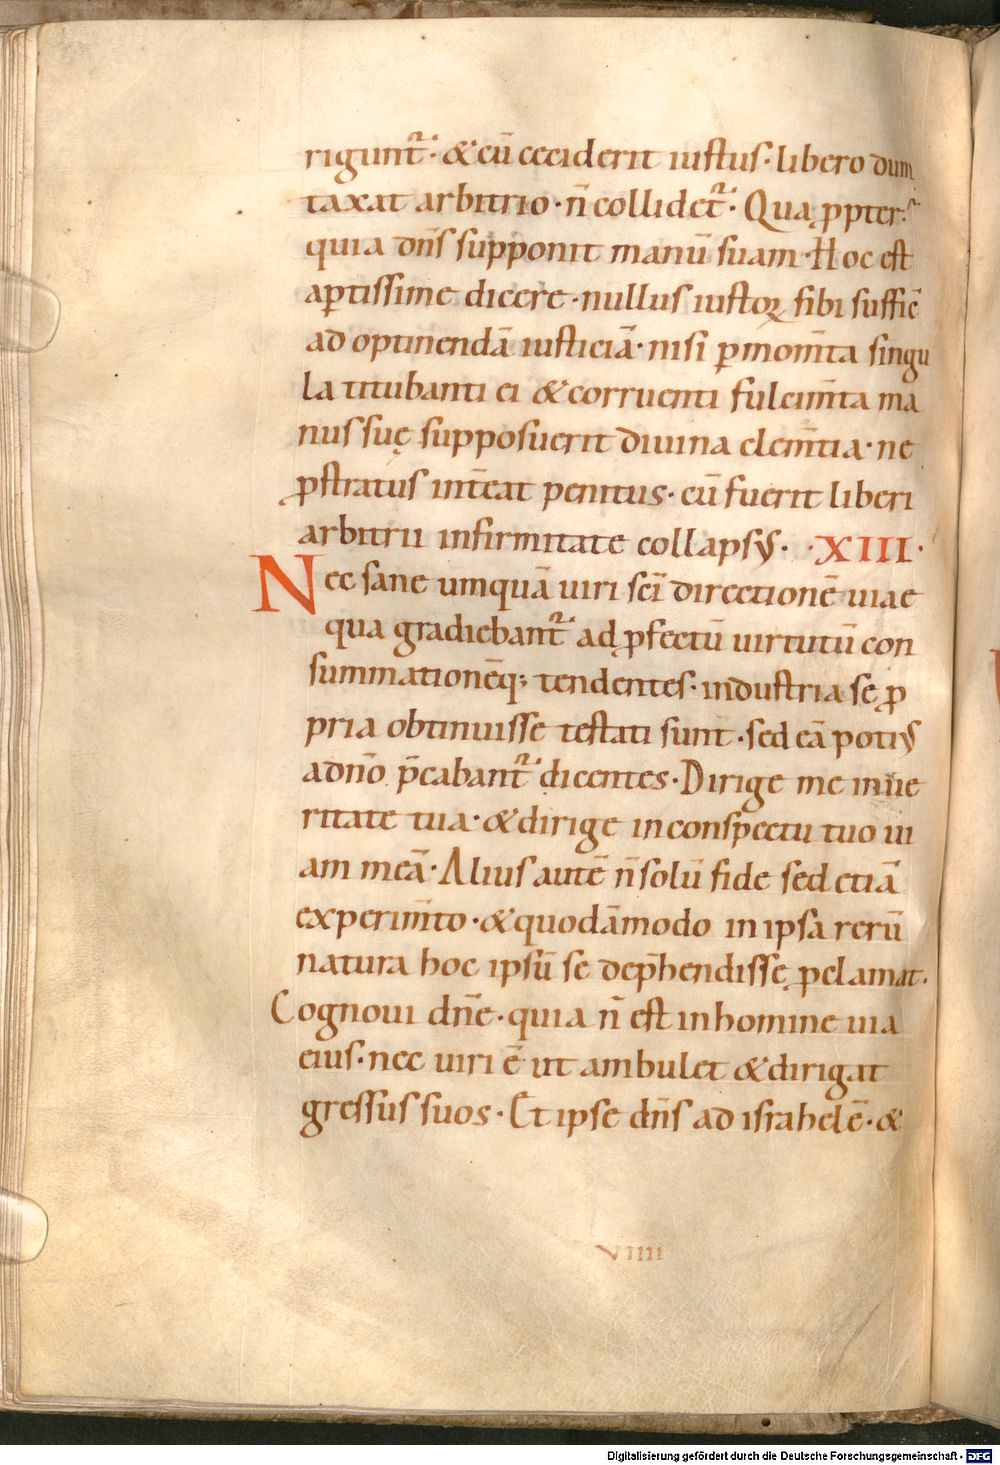 rigunt᷑· &cū ceciderit iustus· libero dum
taxat arbitrio· n̄ collidet᷑· Qua ꝓpter᷑
quia dn̄s supponit manū suam· Hoc est
aptissime dicere· nullus iustoꝝ sibi sufficĒ
ad optinendā iusticiā· nisi ꝑ mom̄ta singu
la titubanti ei &corruenti fulcim̄ta ma
nus suę supposuerit diuina clem̄tia· ne
ꝓstratus int̄eat penitus· cū fuerit liberi
arbitrii infirmitate collapsus· ·XIII·
Nec sane umquā uiri sc̄i directionē uiae
qua gradiebant᷑ ad ꝓfectū uirtutū con
summationēq; tendentes· industria se ꝓ
pria obtinuisse testati sunt· sed eā potius
ad dn̄o p̄cabant᷑ dicentes· Dirige me in ue
ritate tua· &dirige in conspectu tuo ui
am meā· Alius autē n̄ solū fide sed etiā
experim̄to· &quodāmodo in ipsa rerū
natura hoc ipsū se dep̄hendisse, ꝓclamat·
Cognoui dn̄e· quia n̄ est in homine uia
eius· nec uiri ē ut ambulet &dirigat
gressus suos· Et ipse dn̄s ad israhelē· &
VIIII
Digitalisierung gefördert durch die Deutsche Forschungsgemeinschaft - DFG